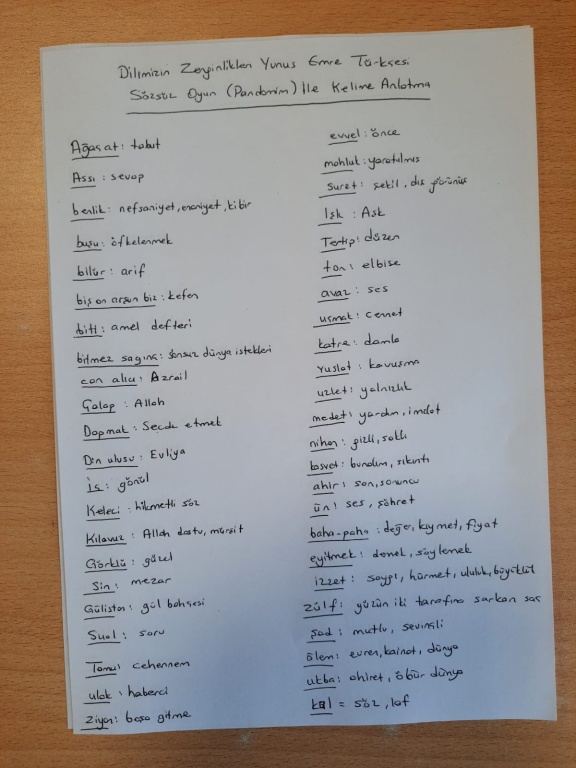 Dilimizin Zenginlikleri Yunus Emre Türkçesi
Sözsüz Oyun (Pandomim) İle Kelime Anlatma
Ağaç at : tabut
Assı : sevap
benlik : nefsaniyet, enaniyet, kibir
buşu : öfkelenmek
bilür : arif
biş on arşun biz : kefen
biti : amel defteri
bitmez sagınç : sonsuz dünya istekleri
can alıcı : Azrail
Çalap : Allah
Dapmak : Secde etmek
Din ulusu : Evliya
İç : gönül
Keleci : hikmetli söz
Kılavuz : Allah dostu, mürşit
Görklü : güzel
Sin : mezar
Gülistan : gül bahçesi
Sual : soru
Tamu : cehennem
ulak : haberci
ziyan : boşa gitme
evvel : önce
mahluk : yaratılmış
suret : şekil, dış görünüş
Işk : Aşk
Tertip : düzen
ton : elbise
avaz : ses
uçmak : cennet
katre : damla
vuslat : kavuşma
uzlet : yalnızlık
medet : yardım, imdat
nihan : gizli, saklı
kasvet : bunalım, sıkıntı
ahir : son, sonuncu
ün : ses, şöhret
baha-paha : değer, kıymet, fiyat
eyitmek : demek, söylemek
izzet : saygı, hürmet, ululuk, büyüklük
zülf : yüzün iki tarafına sarkan saç
şad : mutlu, sevinçli
âlem : evren, kainat, dünya
ukba : ahiret, öbür dünya
kal = söz, laf